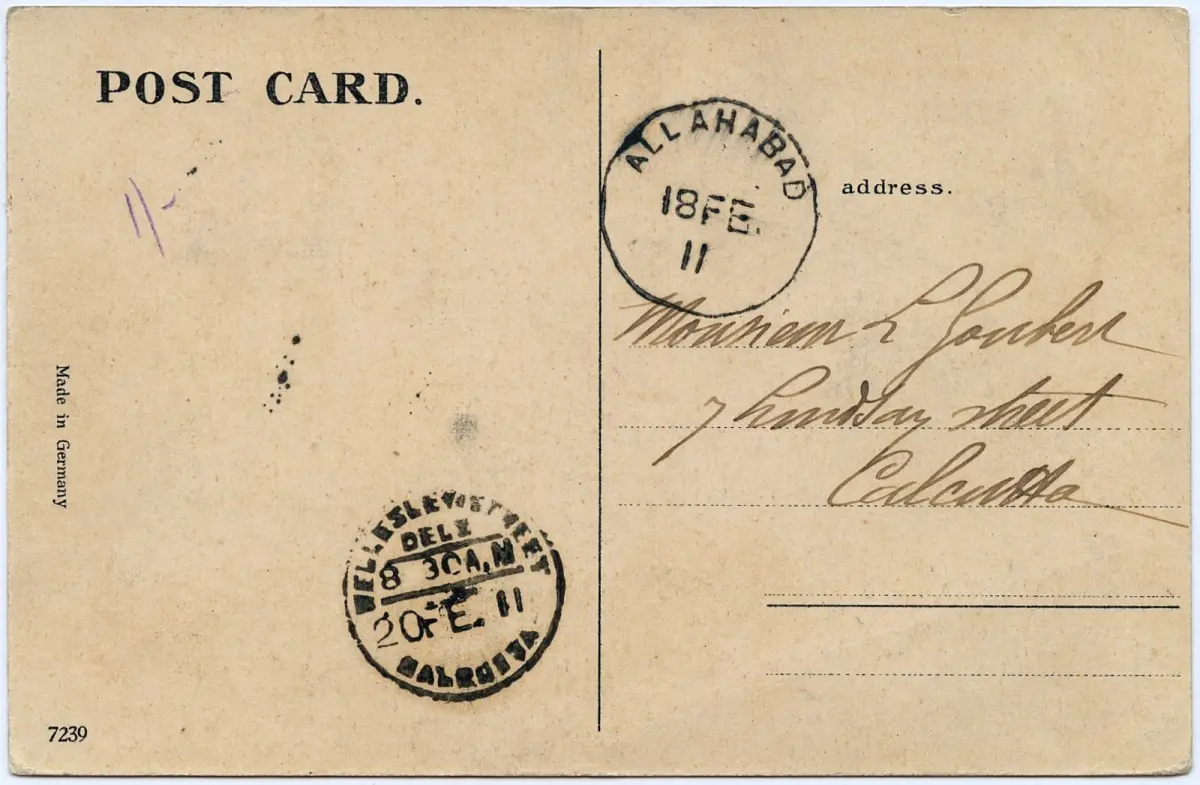 POST CARD.
11-
Made in Germany
7239
WELLESLEY STREET
DELY
8 30A.M
20FE.11
CALCUTTA
ALLAHABAD
18FE.
11
address.
Monsieur L Joubert
7 Lindsay street
Calcutta